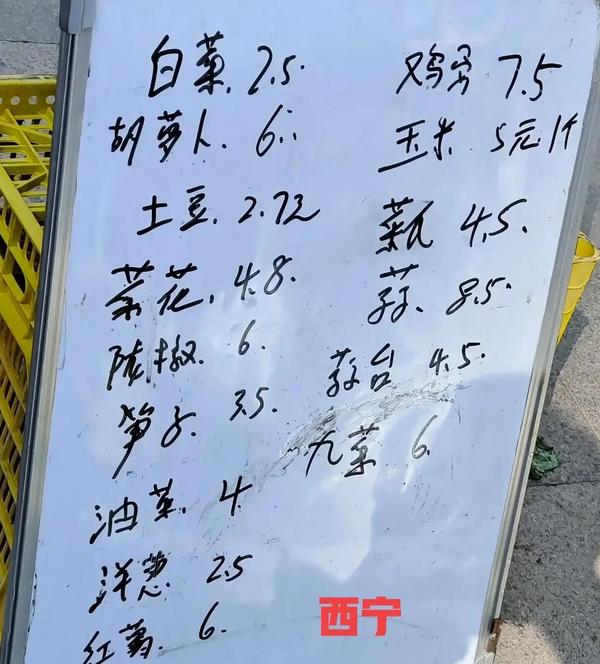 白菜. 2.5.
胡萝卜. 6.
土豆. 2.7元
菜花. 4.8.
陇椒. 6.
笋子. 3.5.
油菜. 4.
洋葱 2.5
红薯. 6.
鸡蛋 7.5
玉米. 5元1个
菜瓜 4.5.
蒜. 8.5.
蒜台 4.5.
九菜. 6.
西宁